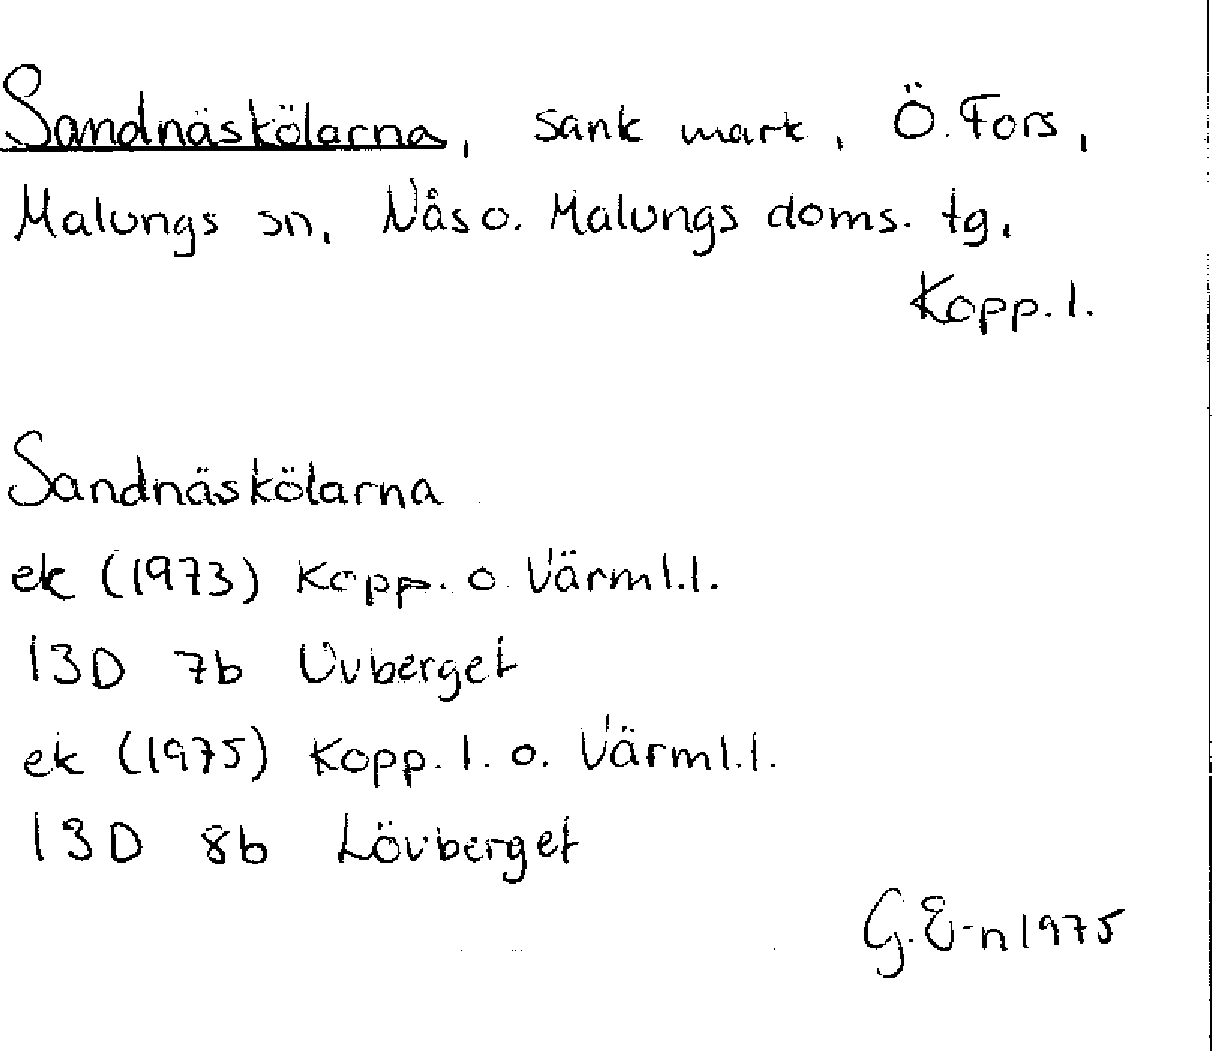 Sandnäskölarna, sank mark, Ö. Fors,
Malungs sn, Nås o. Malungs doms. tg,
Kopp. l.
Sandnäskölarna
ek (1973) Kopp. o. Värml.l.
13D 7b Uvberget
ek (1975) Kopp. l. o. Värml.l.
13D 8b Lövberget
G. E-n 1975